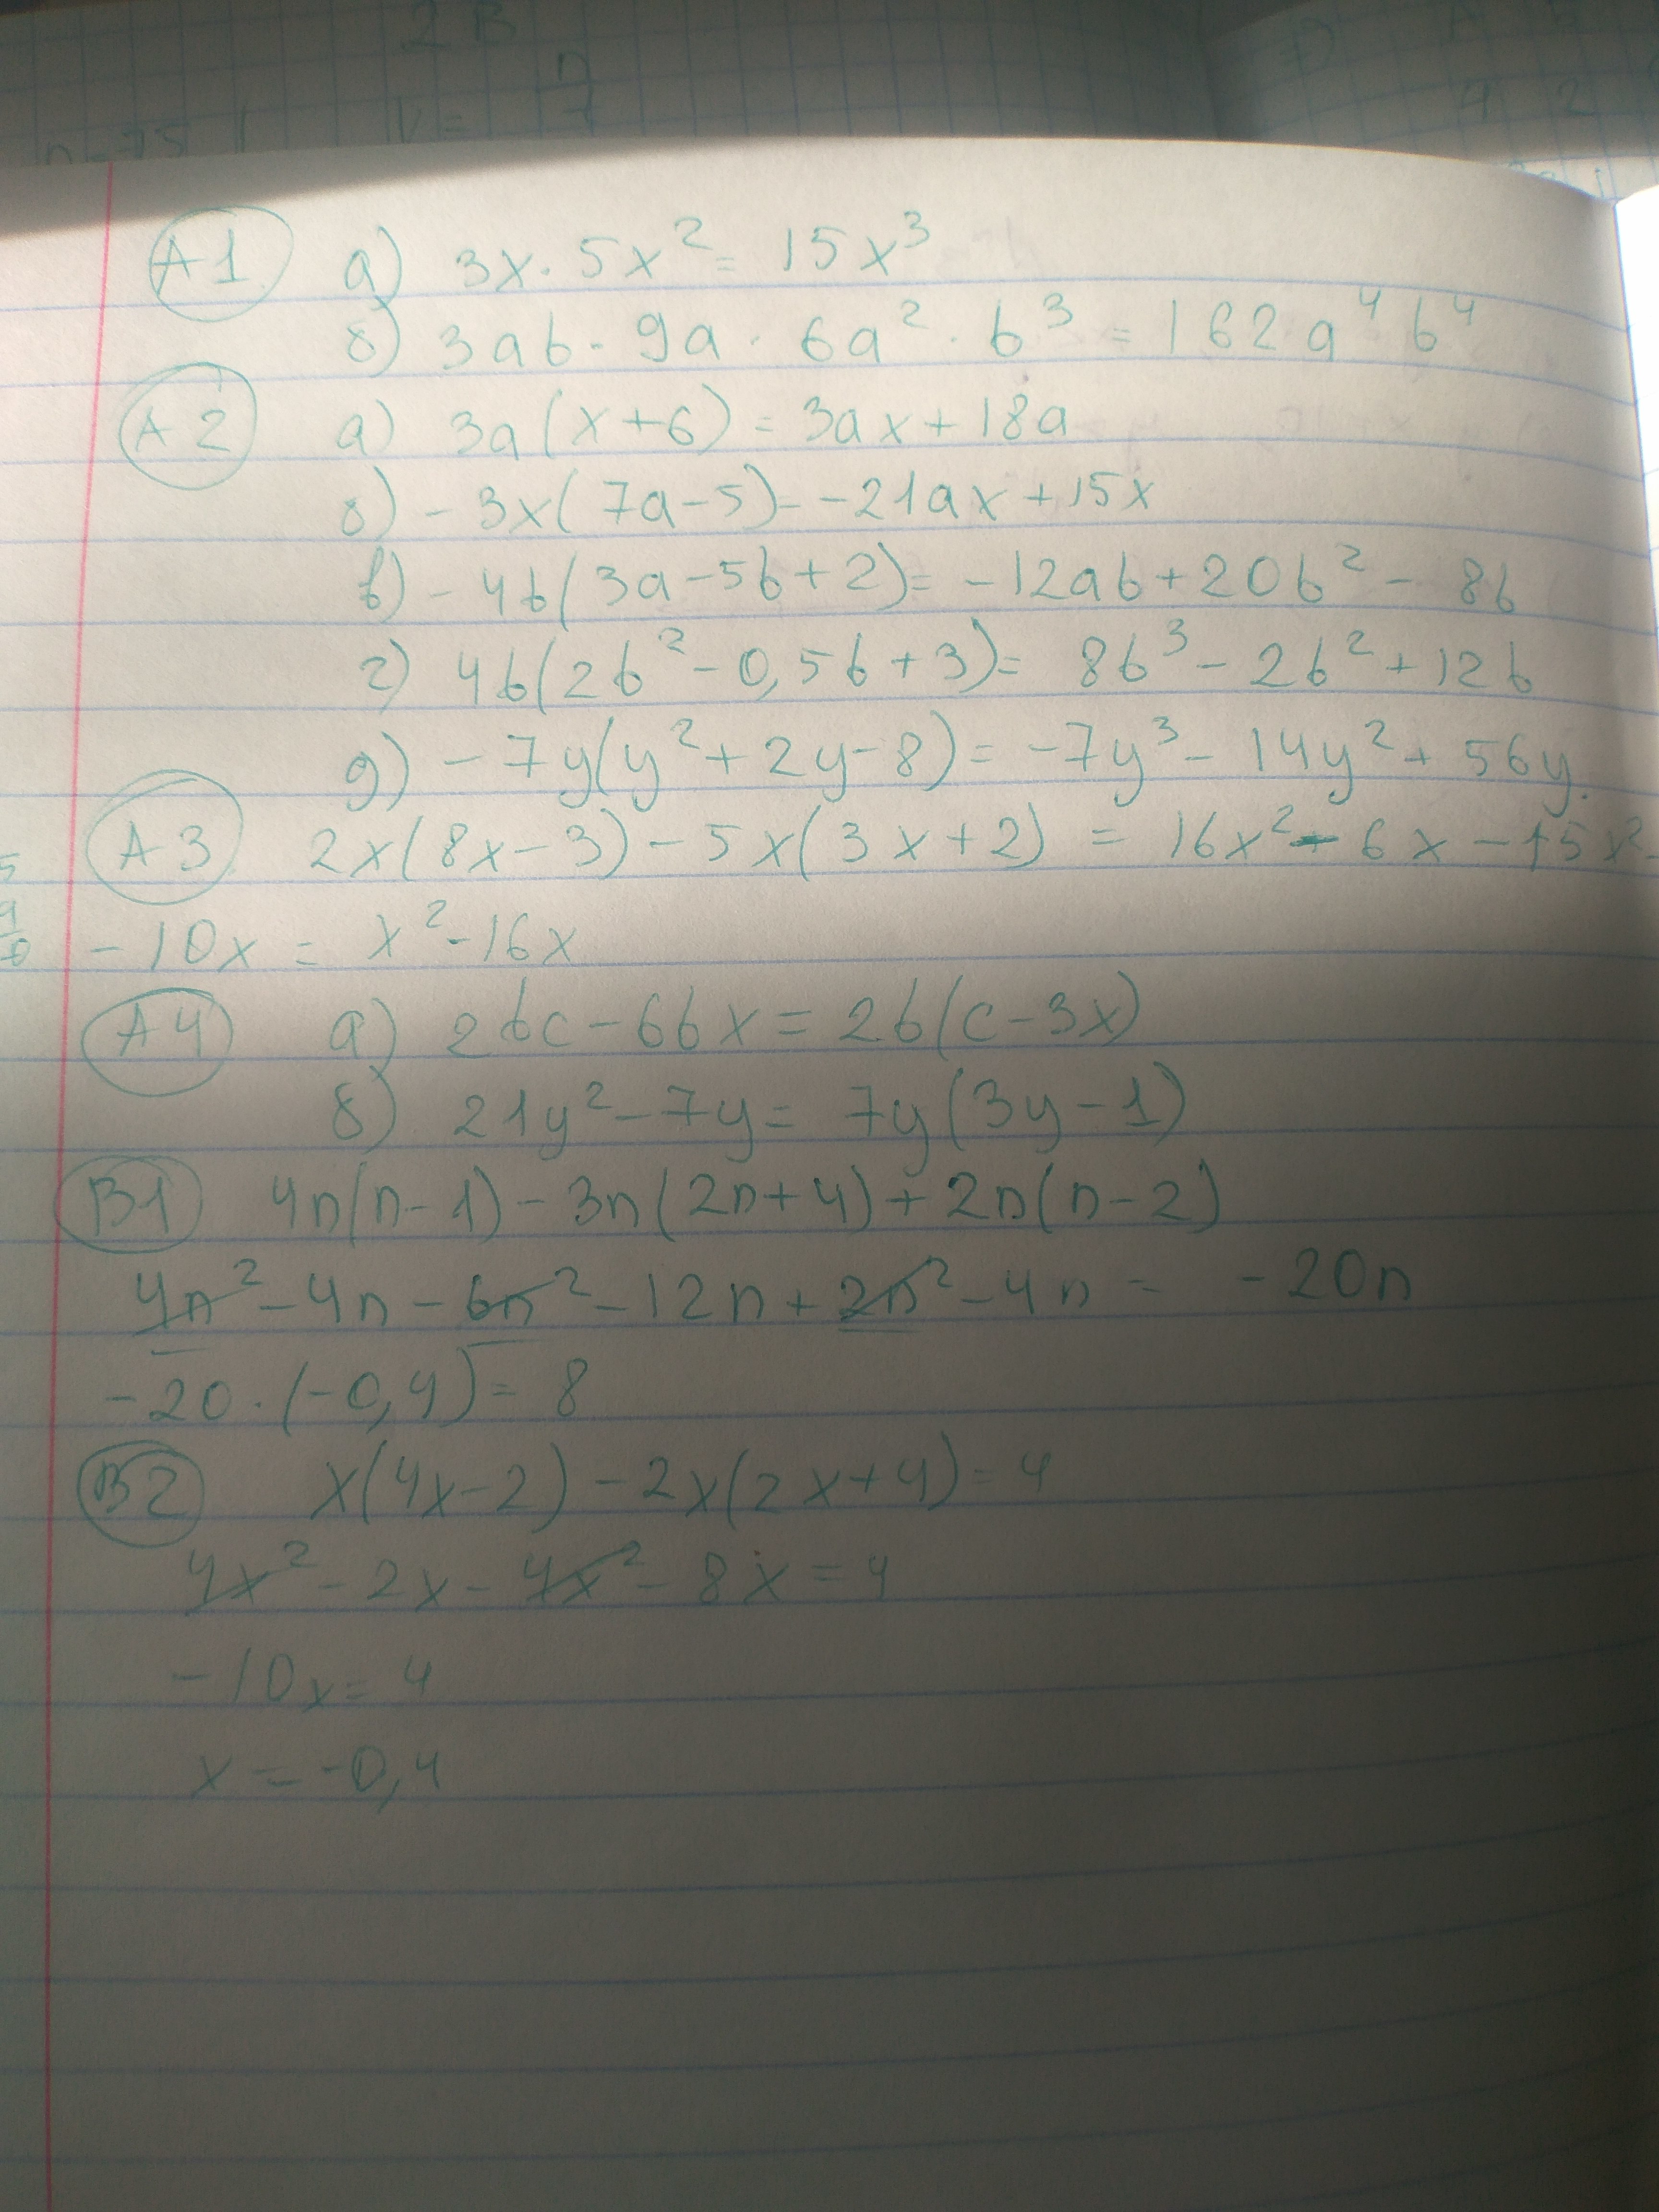 2 В
n = 75 V =
А1 а) 3x · 5x² = 15x³
б) 3ab · 9a · 6a² · b³ = 162a⁴b⁴
А2 а) 3a(x+6) = 3ax + 18a
б) -3x(7a-5) = -21ax + 15x
в) -4b(3a-5b+2) = -12ab + 20b² - 8b
г) 4b(2b² - 0,5b + 3) = 8b³ - 2b² + 12b
д) -7y(y² + 2y - 8) = -7y³ - 14y² + 56y.
А3 2x(8x-3) - 5x(3x+2) = 16x² - 6x - 15x² -
- 10x = x² - 16x
А4 а) 2bc - 6bx = 2b(c - 3x)
б) 21y² - 7y = 7y(3y - 1)
В1 4n(n-1) - 3n(2n+4) + 2n(n-2)
4n² - 4n - 6n² - 12n + 2n² - 4n = -20n
-20 · (-0,4) = 8
В2 x(4x-2) - 2x(2x+4) = 4
4x² - 2x - 4x² - 8x = 4
-10x = 4
x = -0,4